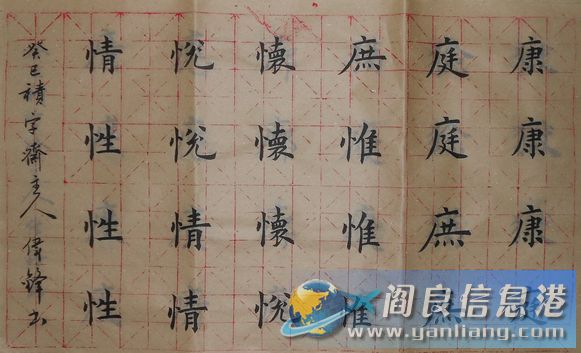 康康康
庭庭庶庶
庶惟惟惟
懷懷懷悅
悅悅情情
情性性性
癸巳積字齋主人偉鋒书
阎良信息港
www.yanliang.com